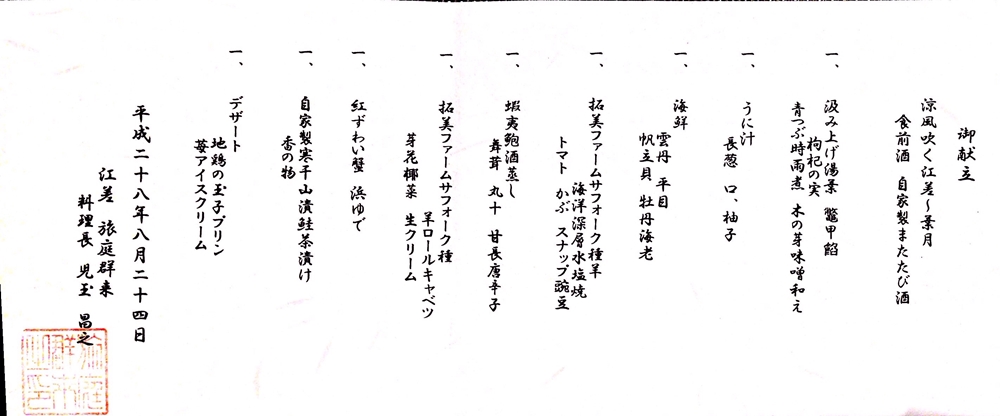 御献立
涼風吹く江差〜葉月
食前酒 自家製またたび酒
一、 汲み上げ湯葉 鼈甲餡
枸杞の実
青つぶ時雨煮 木の芽味噌和え
一、 うに汁
長葱 口、柚子
一、 海鮮
雲丹 平目
帆立貝 牡丹海老
一、 拓美ファームサフォーク種羊
海洋深層水塩焼
トマト かぶ スナップ豌豆
一、 蝦夷鮑酒蒸し
舞茸 丸十 甘長唐辛子
一、 拓美ファームサフォーク種
羊ロールキャベツ
芽花椰菜 生クリーム
一、 紅ずわい蟹 浜ゆで
一、 自家製寒干山漬鮭茶漬け
香の物
一、 デザート
地鶏の玉子プリン
苺アイスクリーム
平成二十八年八月二十四日
江差 旅庭群来
料理長 児玉 昌之